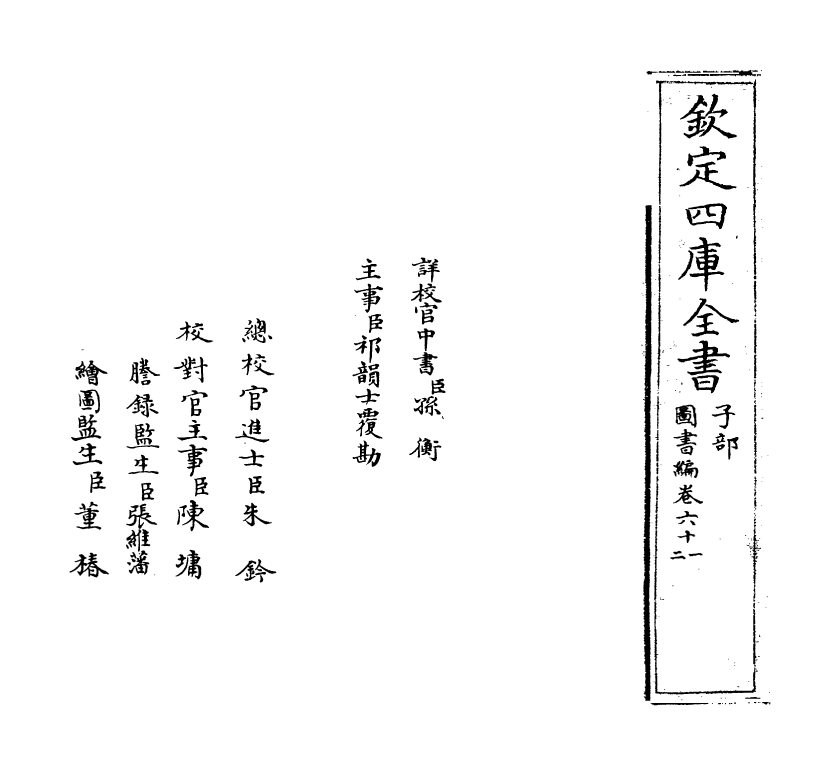 欽定四庫全書
子部
圖書編卷六十一
二
詳校官中書臣孫衡
主事臣祁韻士覆勘
總校官進士臣朱鈐
校對官主事臣陳墉
謄錄監生臣張維藩
繪圖監生臣董椿